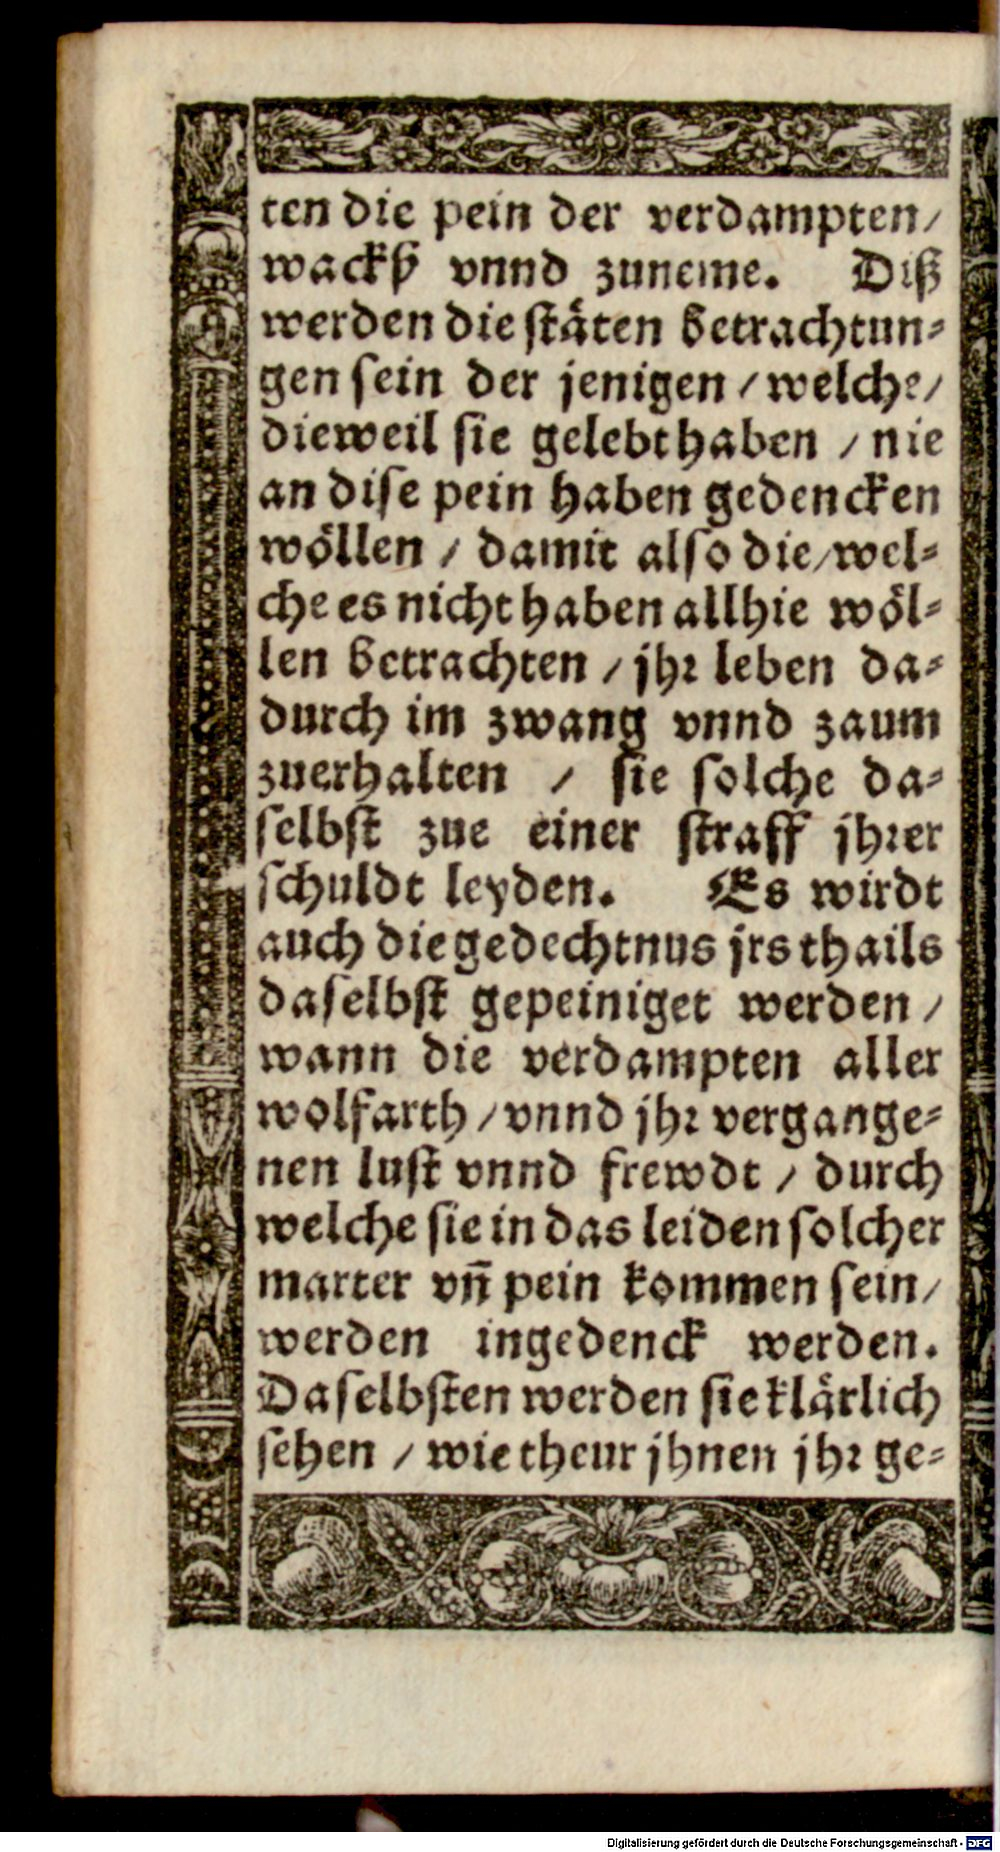 ten die pein der verdampten/
wackß vnnd zuneme. Diß
werden die stäten betrachtun⸗
gen sein der jenigen / welche/
dieweil sie gelebt haben / nie
an dise pein haben gedencken
wöllen / damit also die/wel⸗
che es nicht haben allhie wöl⸗
len betrachten / jhr leben da⸗
durch im zwang vnnd zaum
zuerhalten / sie solche da⸗
selbst zue einer straff jhrer
schuldt leyden. Es wirdt
auch die gedechtnus jrs thails
daselbst gepeiniget werden /
wann die verdampten aller
wolfarth / vnnd jhr vergange⸗
nen lust vnnd frewdt / durch
welche sie in das leiden solcher
marter vn̄ pein kommen sein/
werden ingedenck werden.
Daselbsten werden sie klärlich
sehen / wie theur jhnen jhr ge⸗
Digitalisierung gefördert durch die Deutsche Forschungsgemeinschaft - DFG